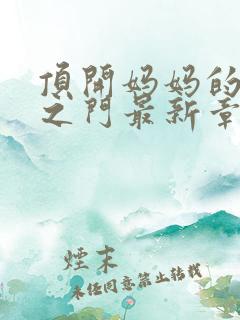 頂開妈妈的
之门最新章
煙末
未径同意禁止转载